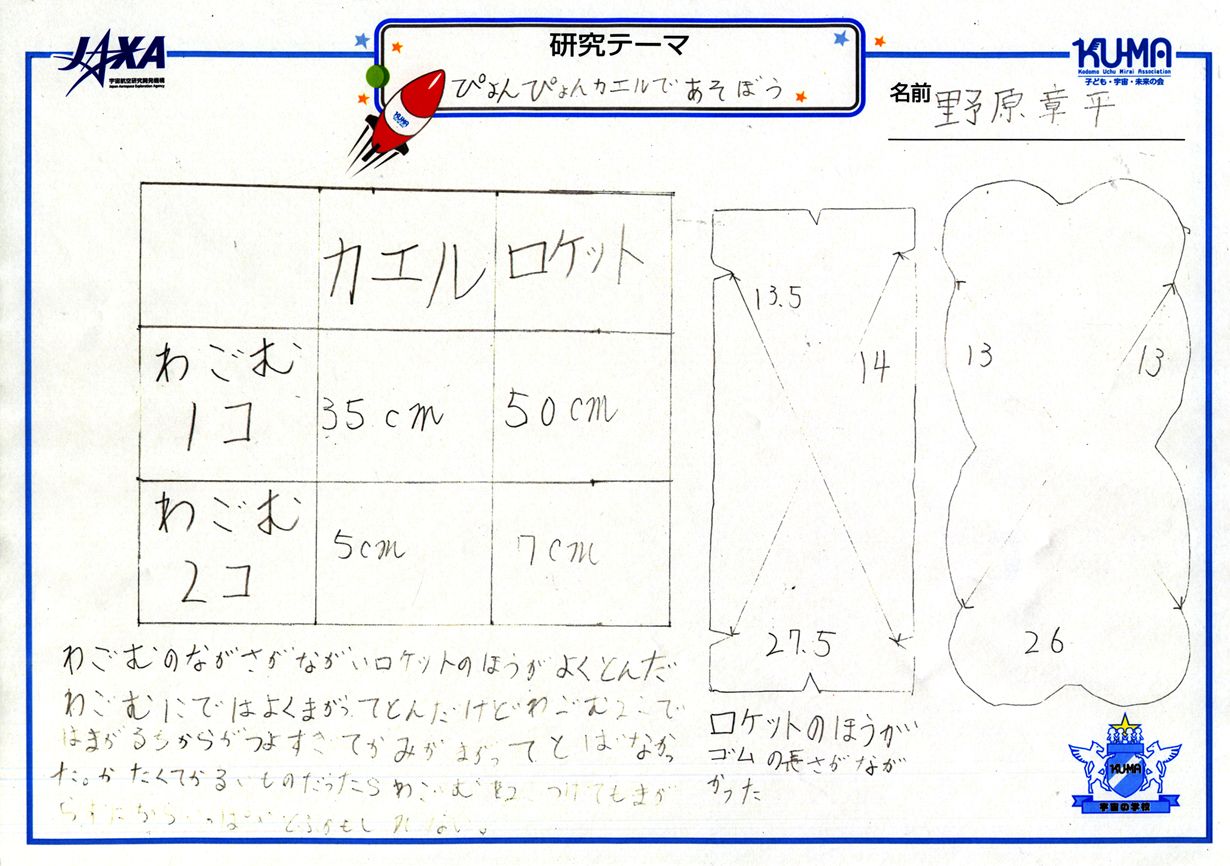 JAXA
宇宙航空研究開発機構
Japan Aerospace Exploration Agency
研究テーマ
ぴょんぴょんカエルであそぼう
KUMA
KU-MA
Kodomo Uchu Mirai Association
子ども・宇宙・未来の会
名前 野原章平
カエル ロケット
わごむ
1コ
35cm 50cm
わごむ
2コ
5cm 7cm
13.5
14
27.5
13
13
26
わごむのながさがながいロケットのほうがよくとんだ
わごむ1こではよくまがってとんだけどわごむ2こで
はまがるちからがつよすぎてかみがまがってとばなかっ
た。かたくてかるいものだったらわごむ2こつけてもまが
らずだから とぶかもしれない。
ロケットのほうが
ゴムの長さがなが
かった
KU-MA
宇宙の学校